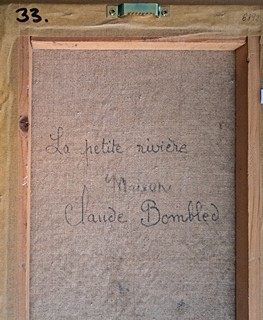 33.
La petite rivière
Claude Bombled